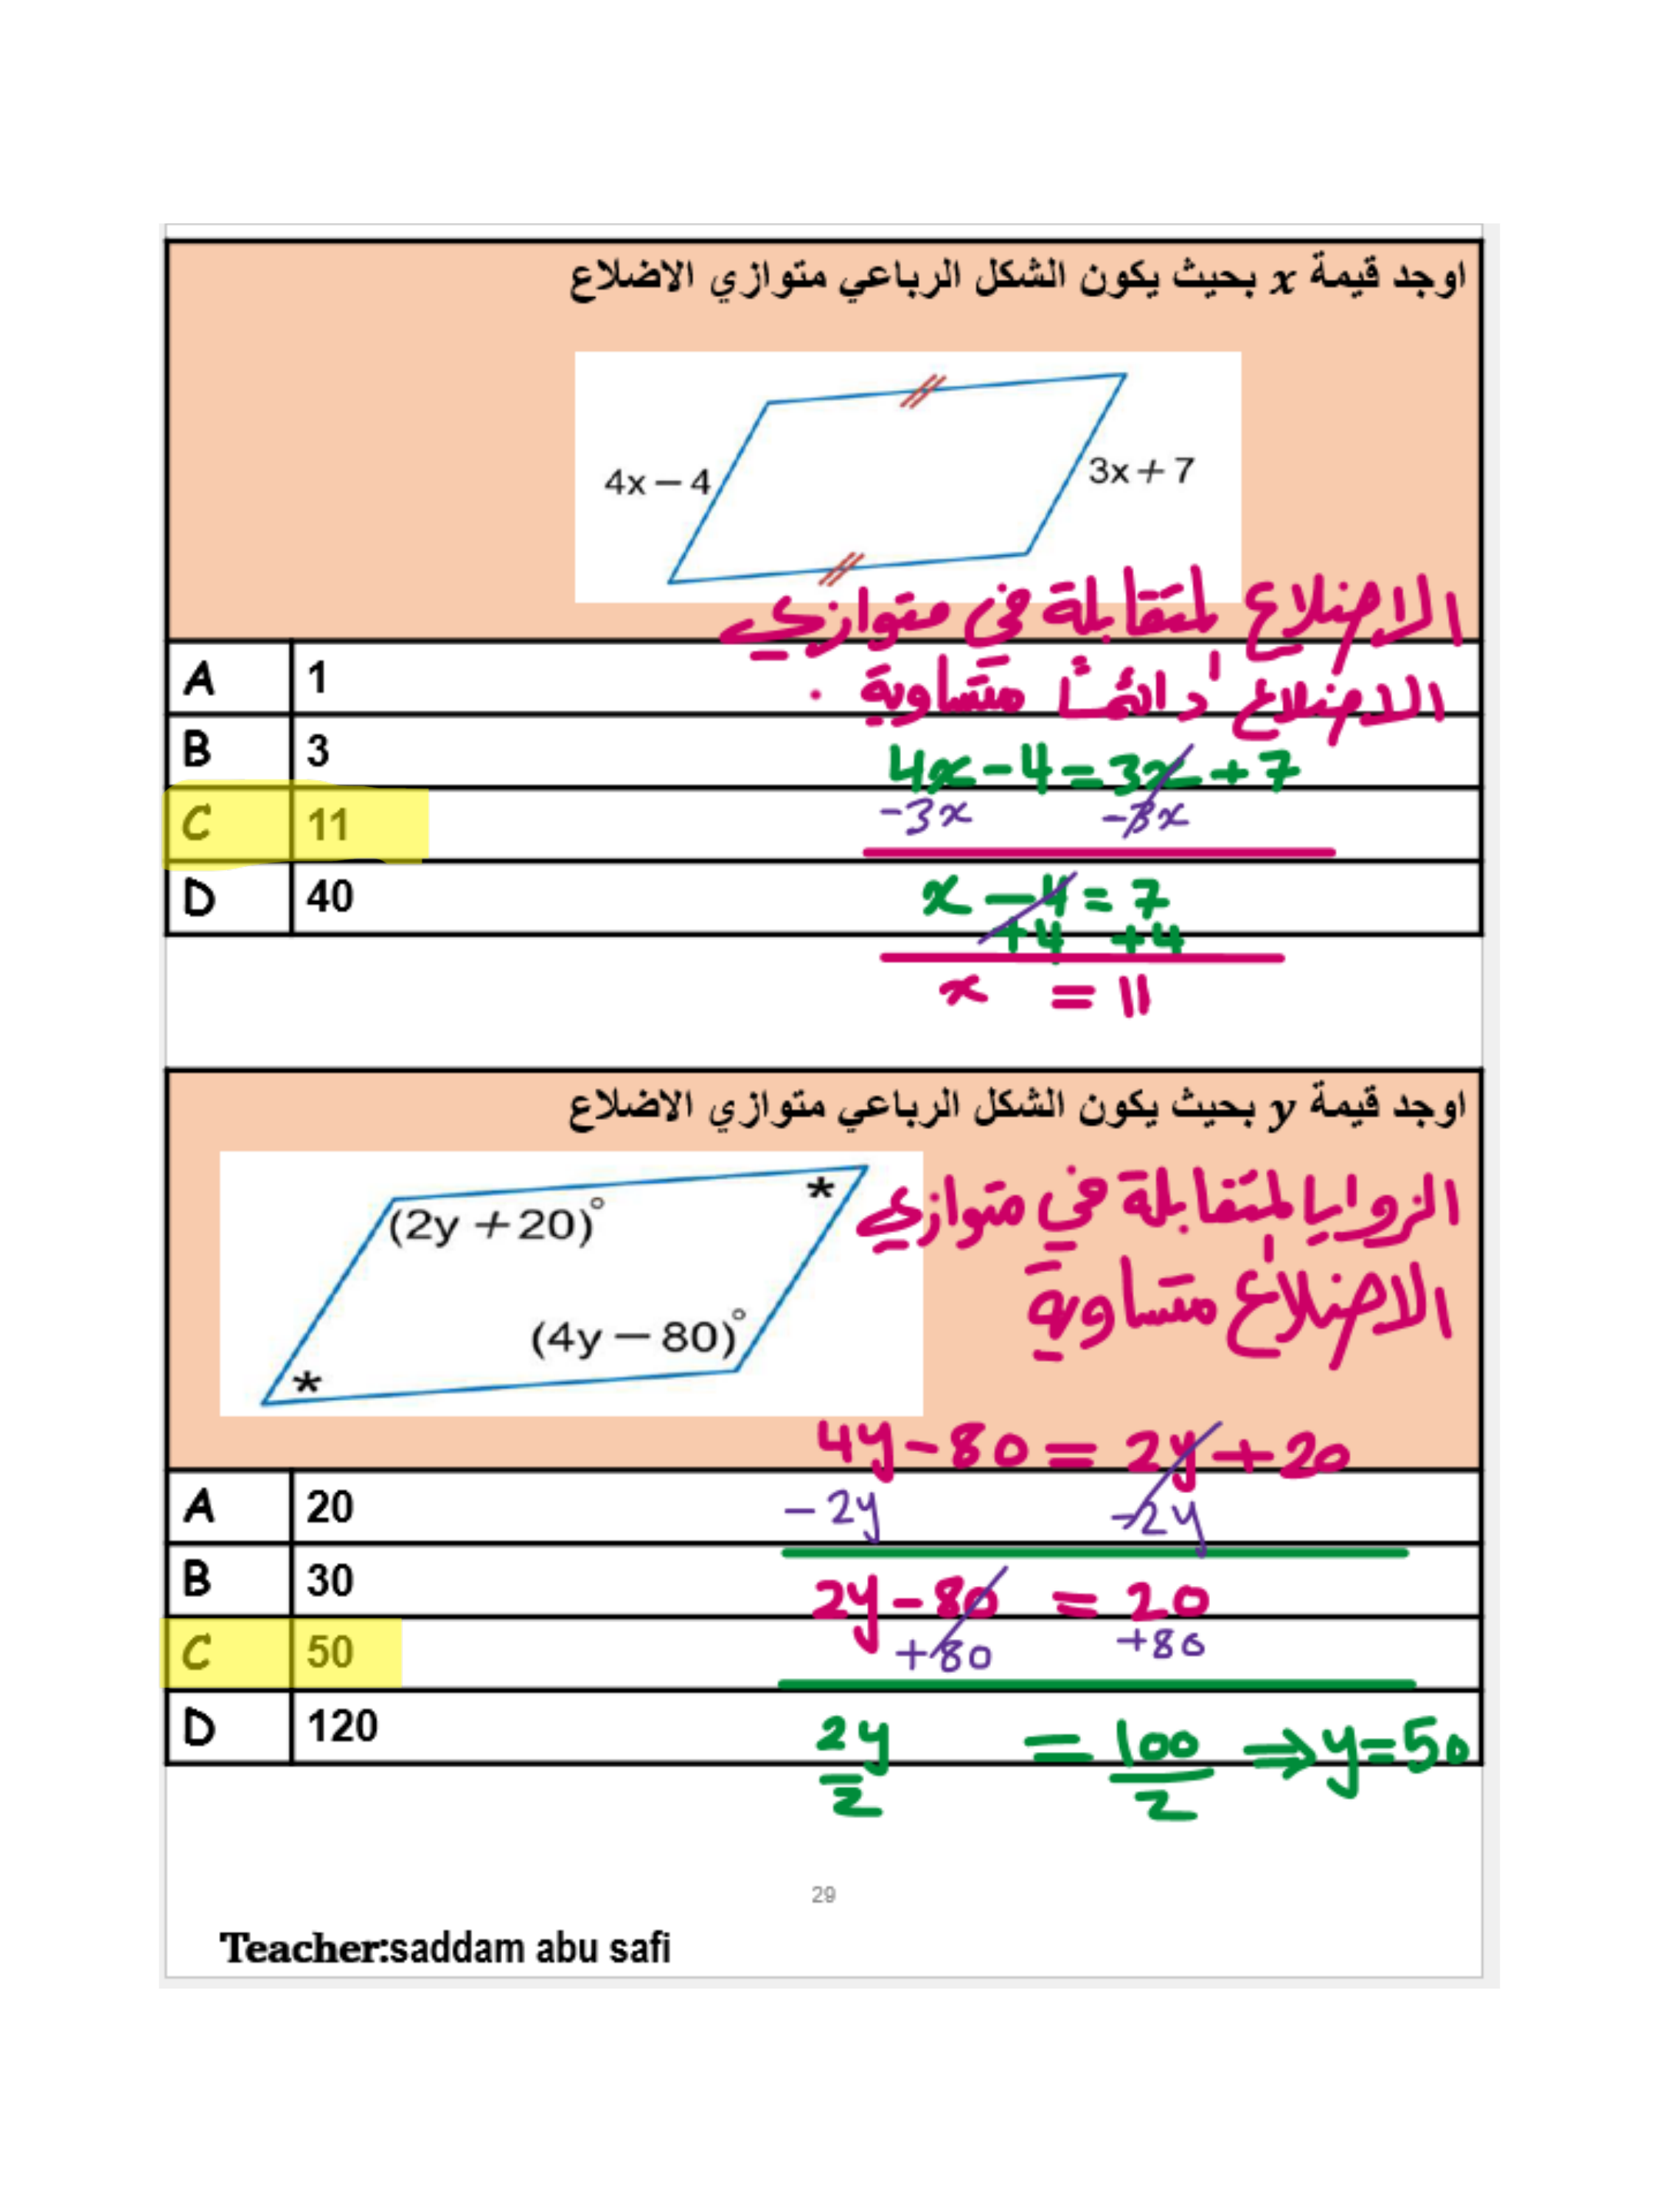 اوجد قيمة x بحيث يكون الشكل الرباعي متوازي الاضلاع
4x − 4
3x + 7
الاضلاع المتقابلة في متوازي
الاضلاع دائمًا متساوية .
A 1
B 3
C 11
D 40
4x - 4 = 3x + 7
-3x -3x
x - 4 = 7
+4 +4
x = 11
اوجد قيمة y بحيث يكون الشكل الرباعي متوازي الاضلاع
(2y + 20)°
*
(4y − 80)°
*
الزوايا المتقابلة في متوازي
الاضلاع متساوية
4y - 80 = 2y + 20
A 20
B 30
C 50
D 120
-2y -2y
2y - 80 = 20
+80 +80
2y = 100 ⇒ y = 50
2 2
29
Teacher:saddam abu safi